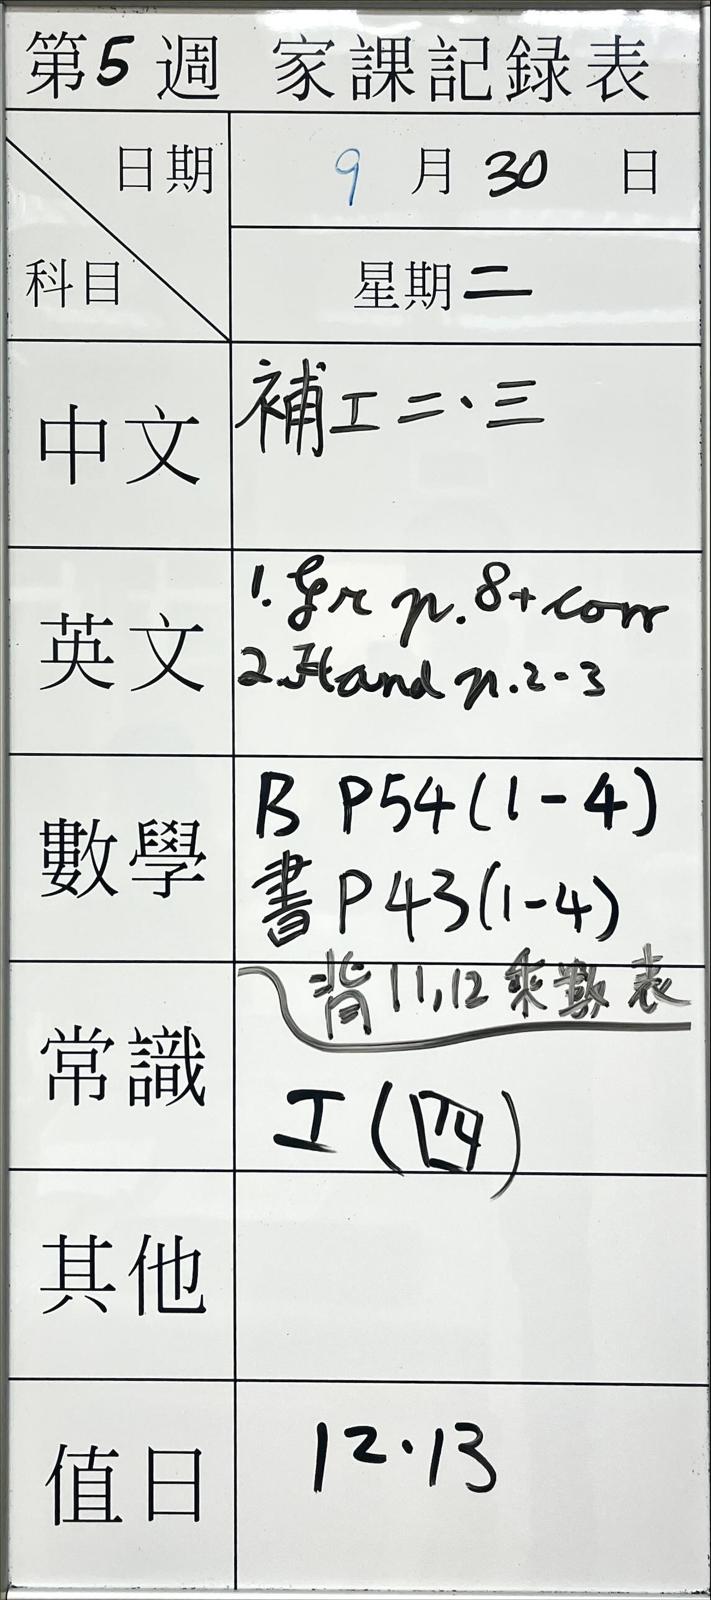 第5週 家課記録表
日期
9月30日
科目
星期二
中文
補工二、三
英文
1. Gr p. 8 + corr
2. Hand p. 2-3
數學
B P54(1-4)
書 P43(1-4)
背11,12乘數表
常識
工(四)
其他
值日
12·13